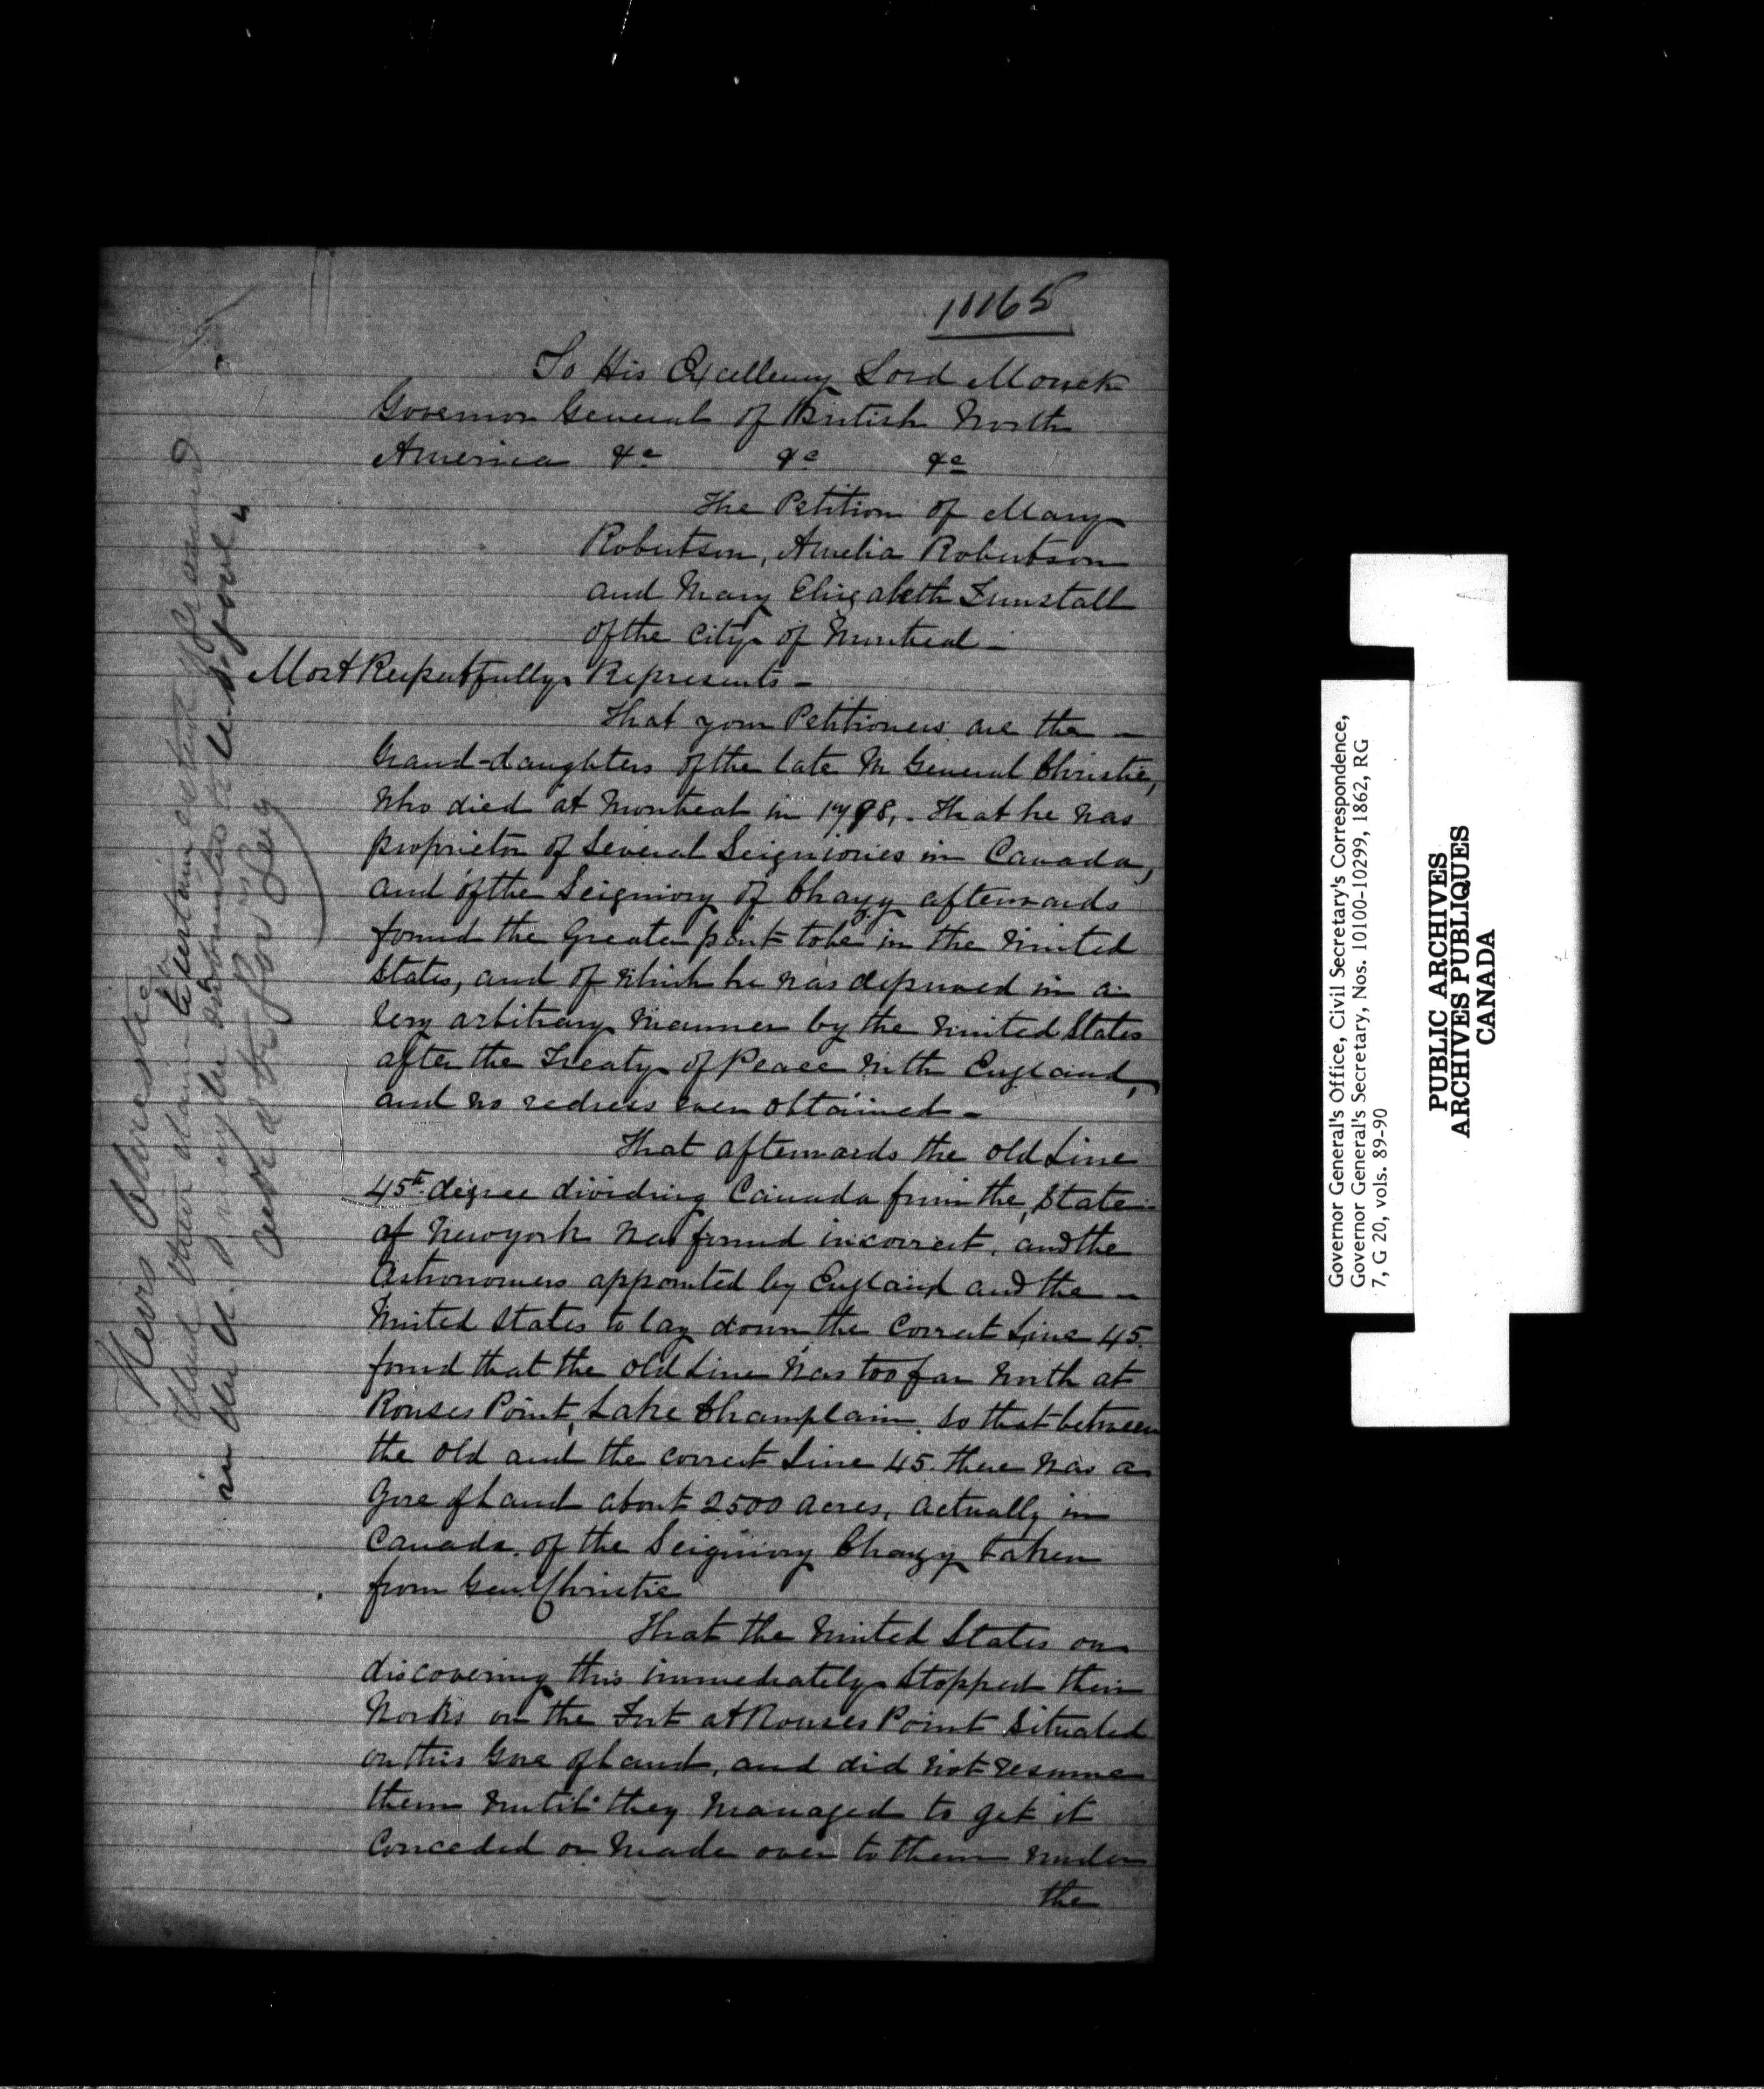 10165
To His Excellency Lord Monck
Governor General of British North
America &c &c &c
The Petition of Mary
Robertson, Amelia Robertson
and Mary Elizabeth Tunstall
of the City of Montreal -
Most Respectfully Represents -
That your Petitioners are the -
Grand-daughters of the late M General Christie,
who died at Montreal in 1798, . That he was
proprietor of Several Seigniories in Canada,
and of the Seigniory of Chazy afterwards
found the Greater part to be in the United
States, and of which he was deprived in a
very arbitrary manner by the United States
after the Treaty of Peace with England,
and no redress ever obtained -
That afterwards the old Line
45th degree dividing Canada from the State
of Newyork was found incorrect, and the
Astronomers appointed by England and the -
United States to lay down the Correct Line 45.
found that the old Line was too far North at
Rouses Point, Lake Champlain, so that between
the old and the correct Line 45. there was a
Gore of Land about 2500 acres, actually in
Canada, of the Seigniory Chazy taken
from Genl Christie
That the United States on
discovering this immediately stopped their
Works on the Fort at Rouses Point situated
on this Gore of Land, and did not resume
them until they managed to get it
Conceded or made over to them under
the
Heirs Christie
their claim to certain
in the U. may be submitted to U.S. Govt
Governor General's Office, Civil Secretary's Correspondence,
Governor General's Secretary, Nos. 10100-10299, 1862, RG
7, G 20, vols. 89-90
PUBLIC ARCHIVES
ARCHIVES PUBLIQUES
CANADA